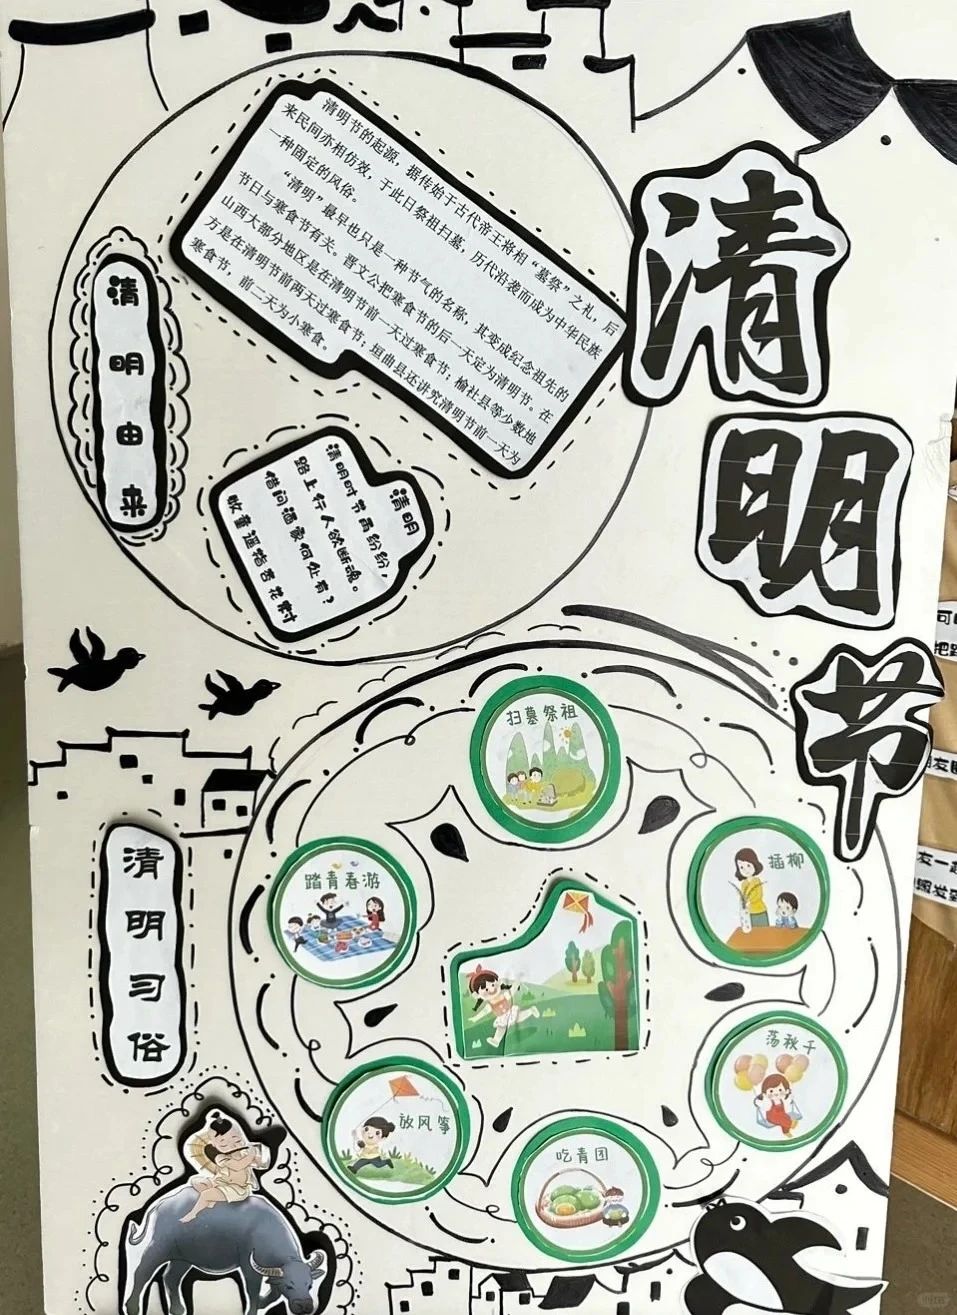 清明节
清明由来
清明节的起源，据传始于古代帝王将相“墓祭”之礼，后
来民间亦相仿效，于此日祭祖扫墓，历代沿袭而成为中华民族
一种固定的风俗。
“清明”最早也只是一种节气的名称，其变成纪念祖先的
节日与寒食节有关。晋文公把寒食节的后一天定为清明节。在
山西大部分地区是在清明节前一天过寒食节；榆社县等少数地
方是在清明节前两天过寒食节；垣曲县还讲究清明节前一天为
寒食节，前二天为小寒食。
清明
清明时节雨纷纷，
路上行人欲断魂。
借问酒家何处有？
牧童遥指杏花村
清明习俗
扫墓祭祖
插柳
荡秋千
吃青团
放风筝
踏青春游